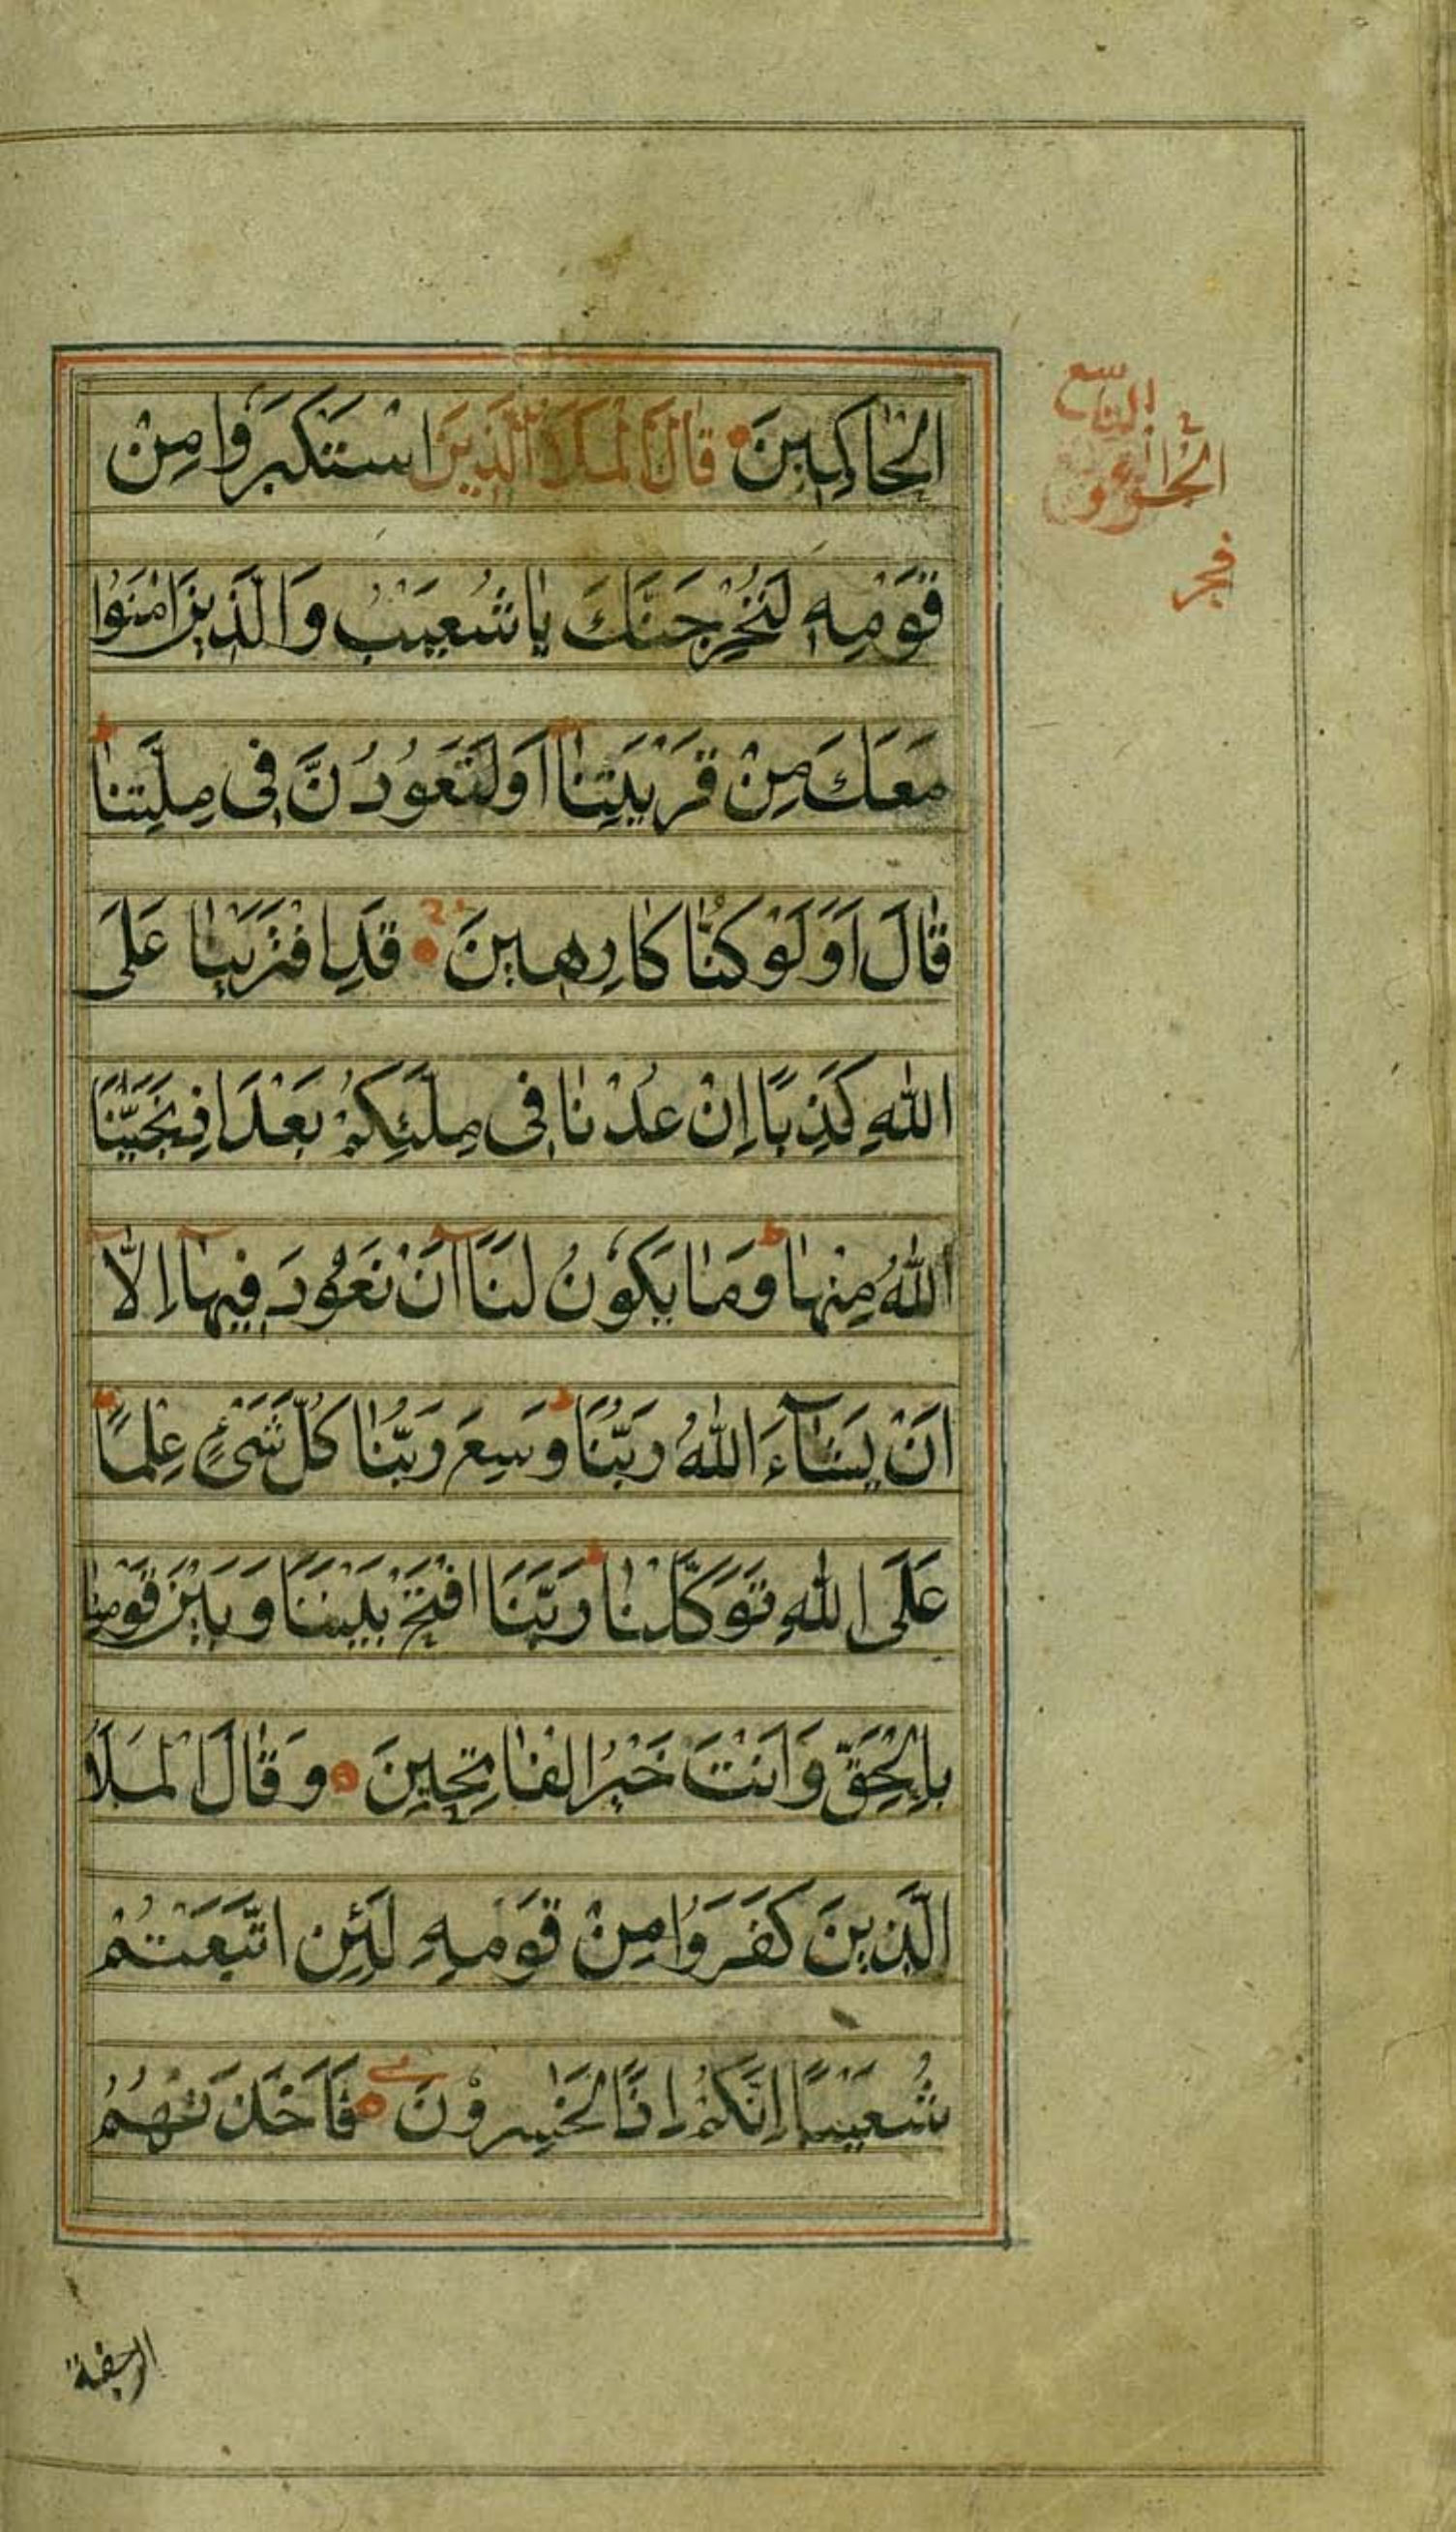 الْحَاكِمِينَ قَالَ الْمَلَأُ الَّذِينَ اسْتَكْبَرُوا مِنْ
قَوْمِهِ لَنُخْرِجَنَّكَ يَا شُعَيْبُ وَالَّذِينَ امَنُوا
مَعَكَ مِنْ قَرْيَتِنَا اَوْ لَتَعُودُنَّ فِى مِلَّتِنَا
قَالَ اَوَلَوْ كُنَّا كَارِهِينَ قَدِ افْتَرَيْنَا عَلَى
اللهِ كَذِبًا اِنْ عُدْنَا فِى مِلَّتِكُمْ بَعْدَ اِذْ نَجَّيْنَا
اللهُ مِنْهَا وَمَا يَكُونُ لَنَا اَنْ نَعُودَ فِيهَا اِلَّا
اَنْ يَشَآءَ اللهُ رَبُّنَا وَسِعَ رَبُّنَا كُلَّ شَىْءٍ عِلْمًا
عَلَى اللهِ تَوَكَّلْنَا رَبَّنَا افْتَحْ بَيْنَنَا وَبَيْنَ قَوْمِنَا
بِالْحَقِّ وَاَنْتَ خَيْرُ الْفَاتِحِينَ وَقَالَ الْمَلَأُ
الَّذِينَ كَفَرُوا مِنْ قَوْمِهِ لَئِنِ اتَّبَعْتُمْ
شُعَيْبًا اِنَّكُمْ اِذًا لَخَاسِرُونَ فَاَخَذَتْهُمُ
الرجفة
التاسع
فجر